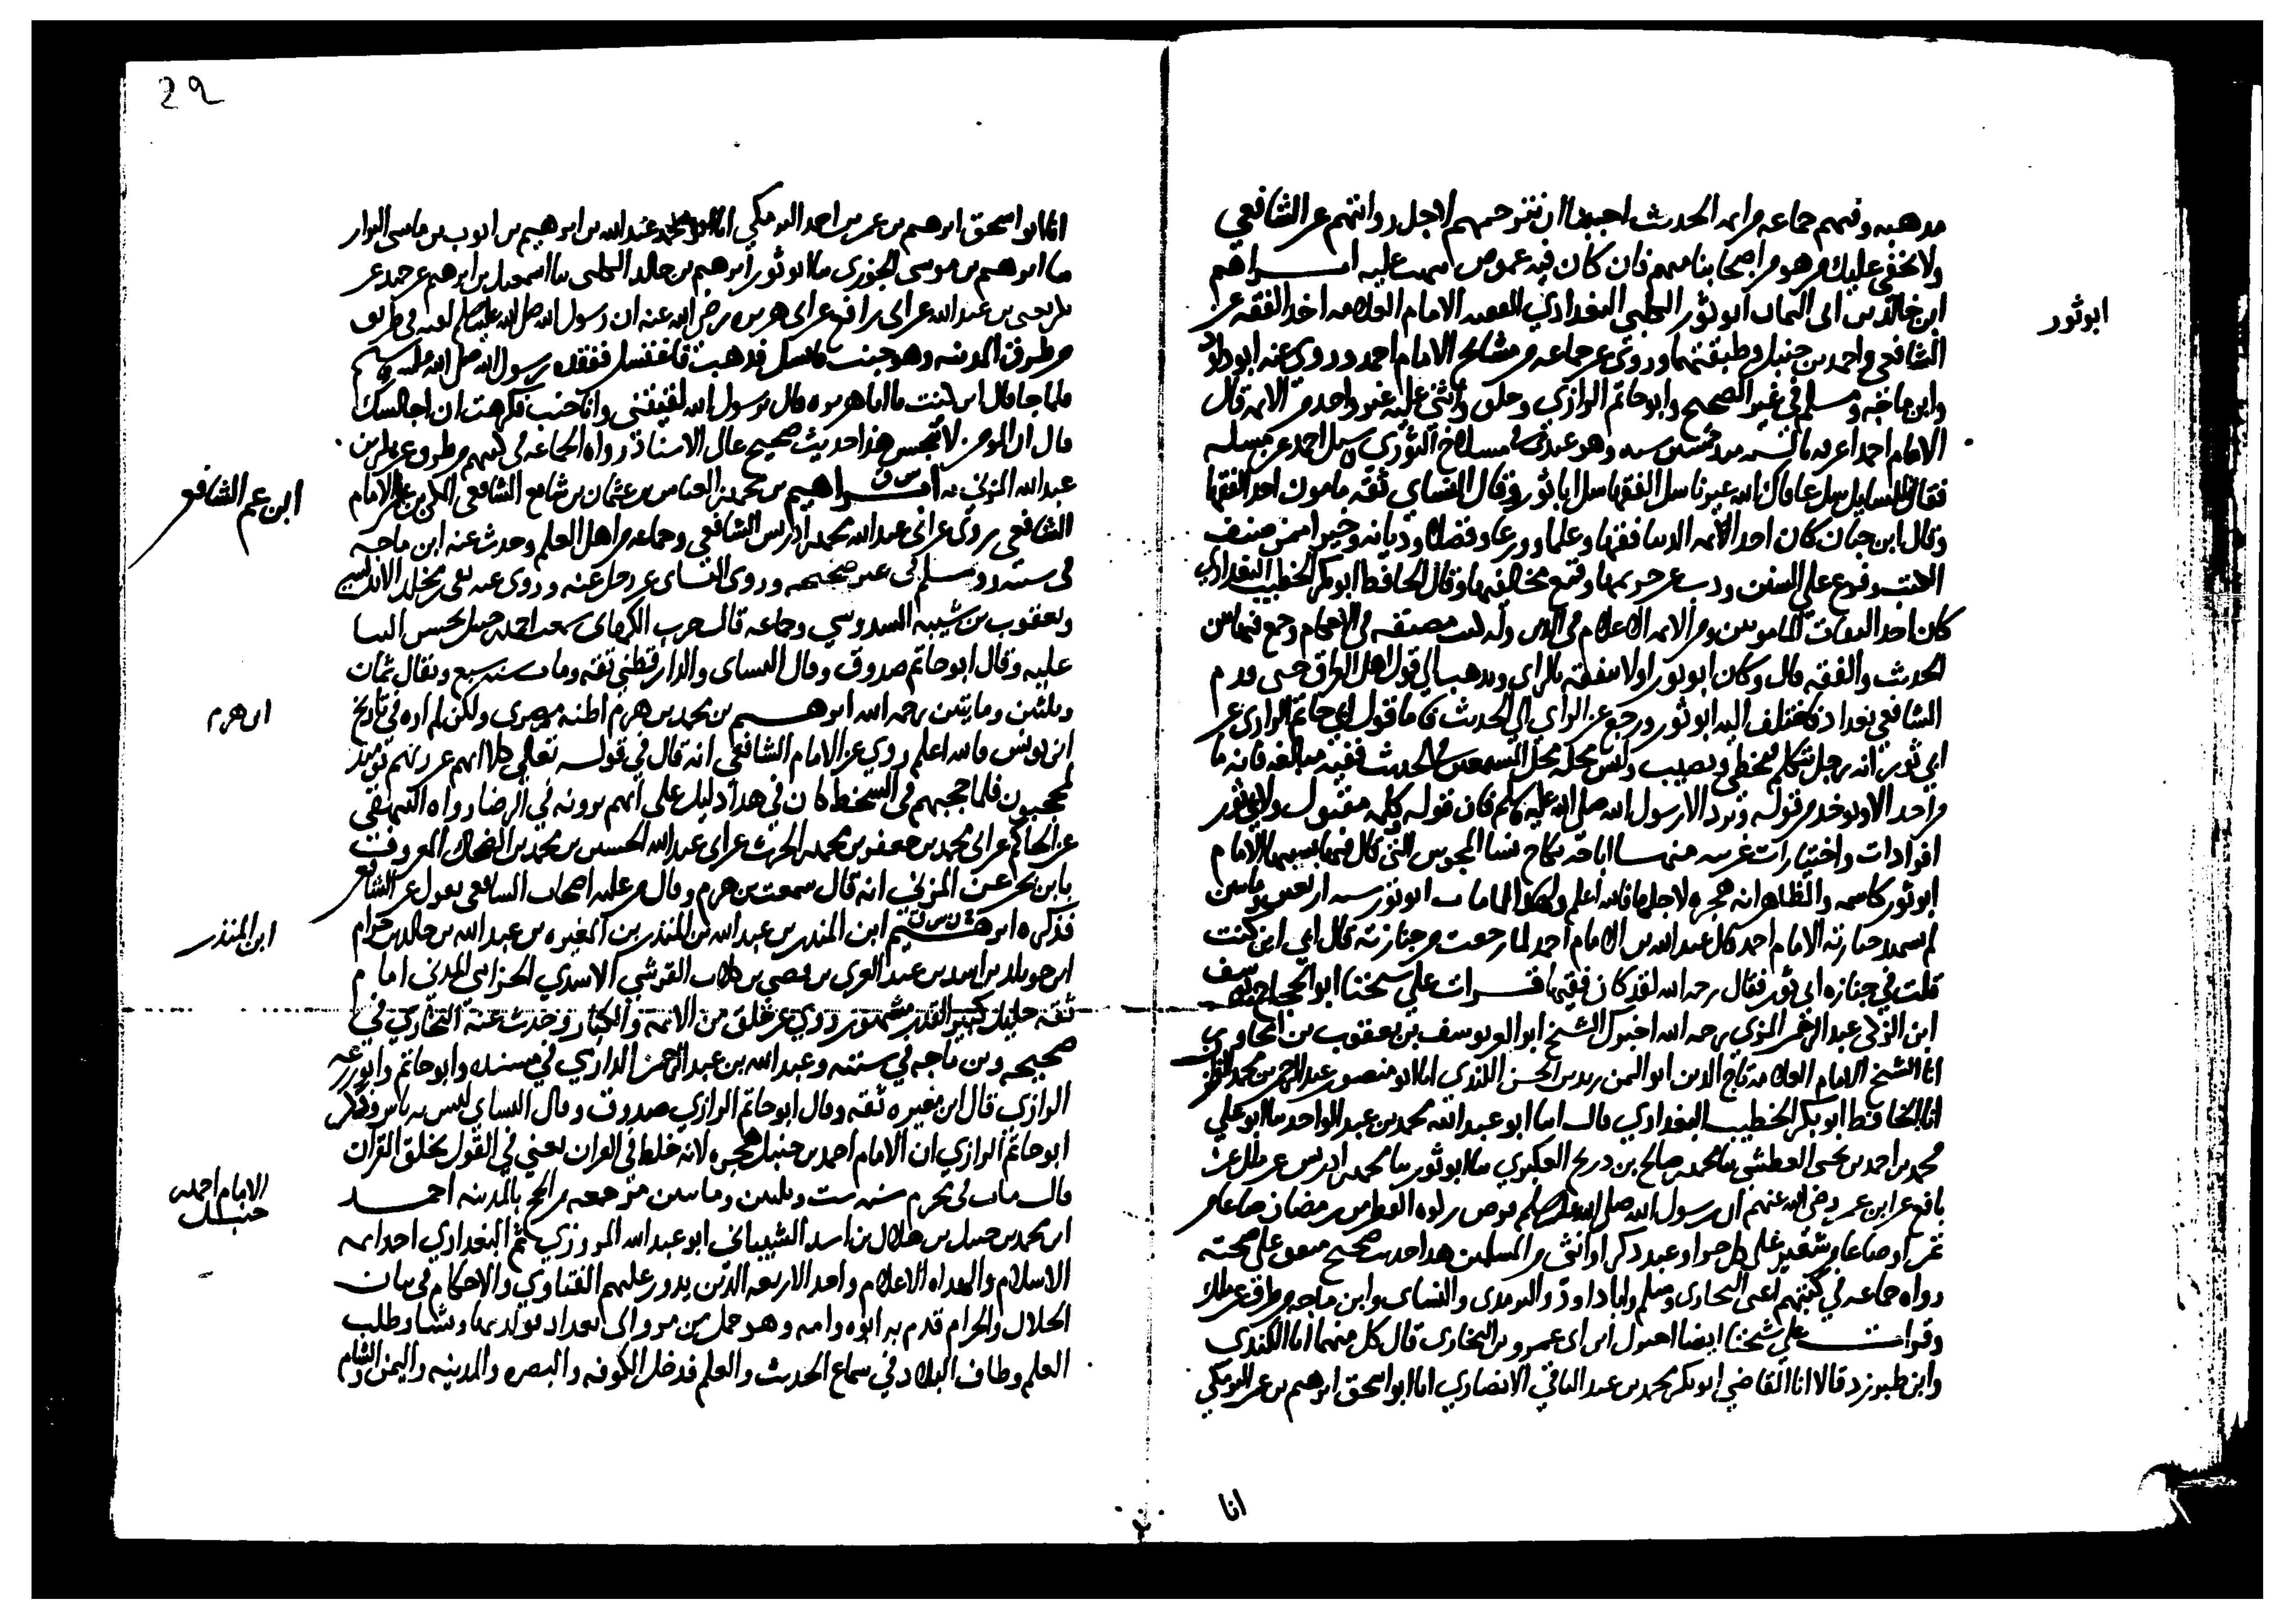 مذهبه وفيهم جماعه من ايمه الحديث احببنا ان نترجمهم لاجل روايتهم عن الشافعي
ولا يخفى عليك من هو من اصحابنا منهم فان كان فيه غموض نبهت عليه ابراهيم
ابن خالد بن ابى اليمان ابو ثور الكلبي البغدادي الفقيه الامام العلامه اخذ الفقه عن
ابو ثور
الشافعي واحمد بن حنبل وطبقتهما وروى عن جماعه من مشائخ الامام احمد وروى عنه ابو داود
وابن ماجه ومسلم في غير الصحيح وابو حاتم الرازي وخلق واثنى عليه غير واحد من الايمه قال
الامام احمد اعرفه بالسنه منذ خمسين سنه وهو عندى في مسلاخ الثوري وسيل احمد عن مسله
فقال للسايل سل عافاك الله غيرنا سل الفقها سل ابا ثور وقال النساي ثقه مامون احد الفقها
وقال ابن حبان كان احد الايمه الدنيا فقها وعلما وورعا وفضلا وديانه وخيرا ممن صنف
الكتب وفرع على السنن وذب عن حريمها وقمع مخالفيها وقال الحافظ ابو بكر الخطيب البغدادي
كان احد الثقات المامونين ومن الايمه الاعلام في الدين وله كتب مصنفه في الاحكام وجمع فيها بين
الحديث والفقه قال وكان ابو ثور اولا يتفقه بالراي ويذهب الى قول اهل العراق حتى قدم
الشافعي بغداد فاختلف اليه ابو ثور ورجع عن الراي الى الحديث فاما قول ابي حاتم الرازي عن
ابي ثور انه رجل يتكلم فيخطي ويصيب وليس محله محل المتسعين في الحديث ففيه مبالغه فانه ما
من احد الا ويوخذ من قوله ويرد الا رسول الله صلى الله عليه وسلم فان قوله كله مقبول ولابي ثور
افرادات واختيارات غريبه منها اباحة نكاح نسا المجوس التي قال فيها بسببها الامام
ابو ثور كاسمه والظاهر انه هجره لاجلها فالله اعلم ولهذا لما مات ابو ثور سنه اربعين ومايتين
لم يشهد جنازته الامام احمد قال عبد الله بن الامام احمد لما رجعت من جنازته قال ابي اين كنت
قلت في جنازه ابى ثور فقال رحمه الله لقد كان فقيها قرات على شيخنا ابو الحجاج يوسف
ابن الزكى عبد الرحمن المزى رحمه الله اخبرك الشيخ ابو العز يوسف بن يعقوب بن المجاور
انا الشيخ الامام العلامه تاج الدين ابو اليمن زيد بن الحسن الكندي انا ابو منصور عبد الرحمن بن محمد القزاز
انا الحافظ ابو بكر الخطيب البغدادي قال انا ابو عبد الله محمد بن عبد الواحد نا ابو علي
محمد بن احمد بن يحيى العطشي نا محمد بن صالح بن ذريح العكبري نا ابو ثور نا محمد بن ادريس عن مالك عن
نافع عن ابن عمر رضي الله عنهم ان رسول الله صلى الله عليه وسلم فرض زكوه الفطر من رمضان صاعا من
تمر او صاعا من شعير على كل حر او عبد ذكر او انثى من المسلمين هذا حديث صحيح متفق على صحته
رواه جماعه في كتبهم اعنى البخارى ومسلم وابا داود والترمذى والنساى وابن ماجه من طرق عن مالك
وقرات على شيخنا ايضا اخبرك ابن ابى عمر وبن البخارى قال كل منهما انا الكندى
وابن طبرزد قالا انا القاضي ابو بكر محمد بن عبد الباقي الانصاري انا ابو اسحق ابرهيم بن عمر البرمكي
انا
22
انا ابو اسحق ابرهيم بن عمر بن احمد البرمكي انا ابو محمد عبد الله بن ابرهيم بن ايوب بن ماسى البزار
نا ابرهيم بن موسى الجوزي نا ابو ثور ابرهيم بن خالد الكلبى نا اسمعيل بن ابرهيم عن حميد عن
بكر بن عبد الله عن ابى رافع عن ابى هريره رضي الله عنه ان رسول الله صلى الله عليه وسلم لقيه في طريق
من طرق المدينه وهو جنب فانسل فذهب فاغتسل ففقده رسول الله صلى الله عليه وسلم
فلما جا قال اين كنت يا ابا هريره قال يرسول الله لقيتني وانا جنب فكرهت ان اجالسك
قال ان المومن لا ينجس هذا حديث صحيح عال الاسناد رواه الجماعه في كتبهم من طرق عن بكر بن
عبد الله المزني به ابراهيم بن محمد بن العباس بن عثمان بن شافع الشافعي المكي بن عم الامام
ابن عم الشافعي
الشافعي روى عن ابى عبد الله محمد بن ادريس الشافعي وجماعه من اهل العلم وحدث عنه ابن ماجه
في سننه ومسلم في غير صحيحه وروى النساى عن رجل عنه وروى عنه بقى بن مخلد الاندلسي
ويعقوب بن شيبه السدوسي وجماعه قال حرب الكرماى سمعت احمد بن حنبل يحسن الثنا
عليه وقال ابو حاتم صدوق وقال النساى والدارقطني ثقه ومات سنه سبع ويقال ثمان
وثلثين ومايتين رحمه الله ابرهيم بن محمد بن هرم اظنه مصرى ولكن لم اره في تاريخ
ابن هرم
ابن يونس فالله اعلم روي عن الامام الشافعي انه قال في قوله تعالى كلا انهم عن ربهم يومئذ
لمحجوبون فلما حجبهم في السخط كان في هذا دليل على انهم يرونه في الرضا رواه البيهقي
عن الحاكم عن ابى محمد بن جعفر بن محمد بن الحرث عن ابى عبد الله الحسين بن محمد بن الضحاك المعروف
بابن بحر عن المزني انه قال سمعت بن هرم وقال من عليه اصحاب الشافعي يقول عن الشافعي
فذكره ابرهيم ابن المنذر بن عبد الله بن المنذر بن المغيره بن عبد الله بن خالد بن حزام
ابن المنذر
ابن خويلد بن اسد بن عبد العزى بن قصي بن كلاب القرشي الاسدي الحزامي المدنى امام
ثقه جليل كبير القدر مشهور روي عن خلق من الايمه والكبار وحدث عنه البخاري في
صحيحه وبن ماجه في سننه وعبد الله بن عبد الرحمن الدارمي في مسنده وابو حاتم وابو زرعه
الرازي قال ابن مغيره ثقه وقال ابو حاتم الرازي صدوق وقال النساي ليس به باس وذكر
ابو حاتم الرازي ان الامام احمد بن حنبل هجره لانه خلط في القران يعني في القول بخلق القران
قال مات في محرم سنه ست وثلثين ومايتين مرجعه من الحج بالمدينه احمد
الامام احمد بن
حنبل
ابن محمد بن حنبل بن هلال بن اسد الشيباني ابو عبد الله المروزي ثم البغدادي احد ايمه
الاسلام والهداه الاعلام واحد الاربعه الذين يدور عليهم الفتاوي والاحكام في بيان
الحلال والحرام قدم به ابوه وامه وهو حمل من مرو الى بغداد فولد بها ونشا وطلب
العلم وطاف البلاد في سماع الحديث والعلم فدخل الكوفه والبصره والمدينه واليمن والشام